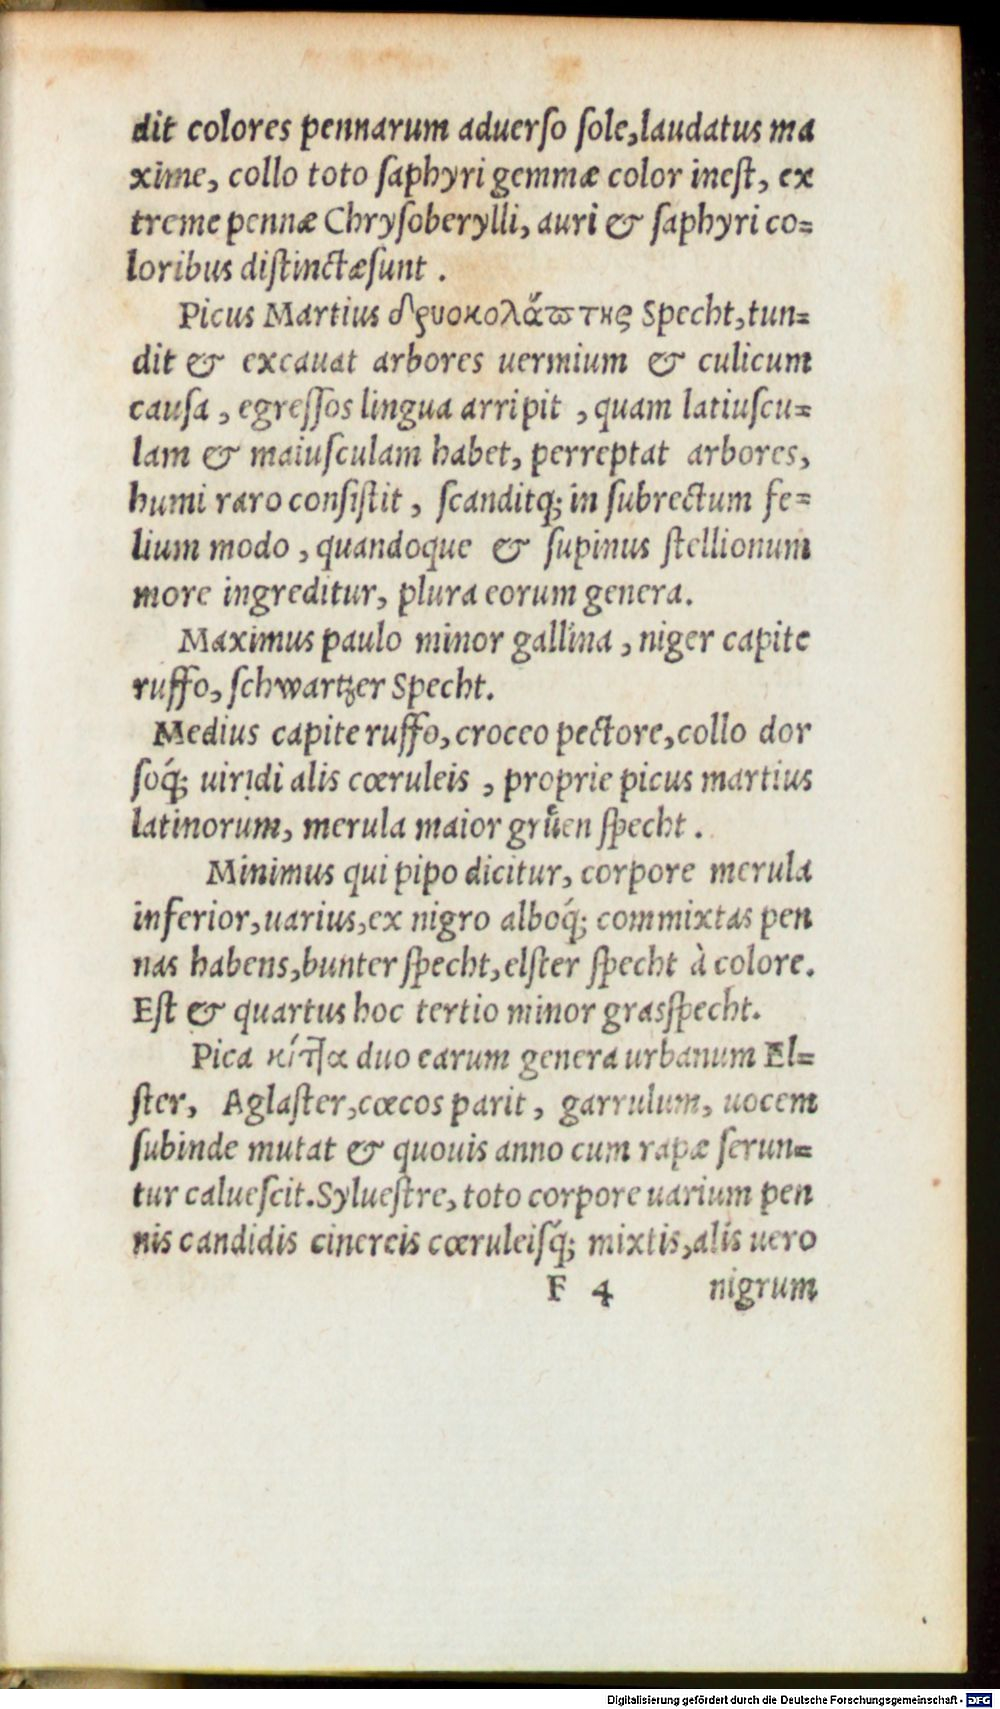 dit colores pennarum aduerſo ſole,laudatus ma
xime, collo toto ſaphyri gemmæ color ineſt, ex
treme pennæ Chryſoberylli, auri & ſaphyri co=
loribus diſtinctæſunt .
Picus Martius δρυοκολάϖτης Specht,tun=
dit & excauat arbores uermium & culicum
cauſa , egreſſos lingua arripit , quam latiuſcu=
lam & maiuſculam habet, perreptat arbores,
humi raro conſiſtit , ſcanditq; in ſubrectum fe=
lium modo , quandoque & ſupinus ſtellionum
more ingreditur, plura eorum genera.
Maximus paulo minor gallina , niger capite
ruffo, ſchwartzer Specht.
Medius capite ruffo, croceo pectore,collo dor
ſoq́; uiridi alis cœruleis , proprie picus martius
latinorum, merula maior gruͤen ſpecht .
Minimus qui pipo dicitur, corpore merula
inferior,uarius,ex nigro alboq́; commixtas pen
nas habens,bunter ſpecht,elſter ſpecht à colore.
Eſt & quartus hoc tertio minor grasſpecht.
Pica κίττα duo earum genera urbanum El=
ſter, Aglaſter,cœcos parit , garrulum, uocem
ſubinde mutat & quouis anno cum rapæ ſerun=
tur calueſcit.Sylueſtre, toto corpore uarium pen
nis candidis cinereis cœruleiſq́; mixtis,alis uero
F 4 nigrum
Digitalisierung gefördert durch die Deutsche Forschungsgemeinschaft - DFG